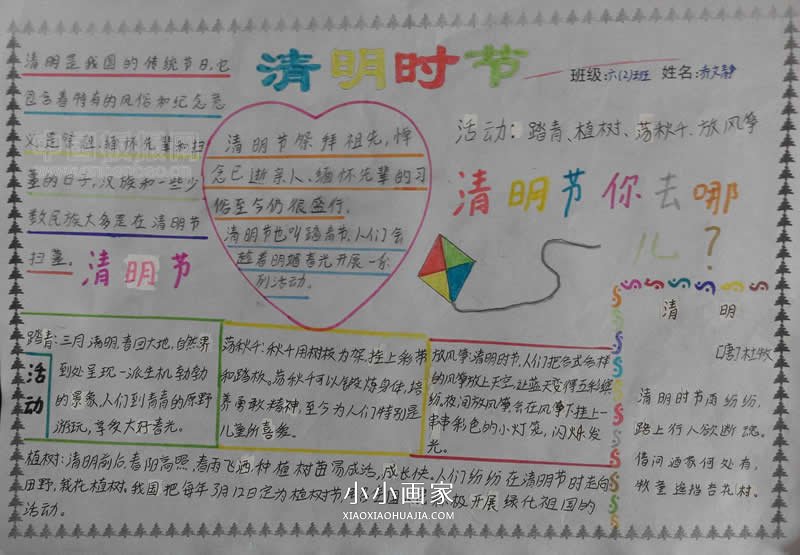 清明时节
班级:六(2)班 姓名:
清明是我国的传统节日,它
包含着特有的风俗和纪念意
义,是祭祖、缅怀先辈和扫
墓的日子,汉族和一些少
数民族大多是在清明节
扫墓。
清明节
清明节祭拜祖先,悼
念已逝亲人、缅怀先辈的习
俗至今仍很盛行。
清明节也叫踏青节,人们会
趁着明媚春光开展一系
列活动。
活动:踏青、植树、荡秋千、放风筝
清明节你去哪
儿?
活动
踏青:三月清明,春回大地,自然界
到处呈现一派生机勃勃
的景象,人们到青青的原野
游玩,享受大好春光。
荡秋千:秋千用树枝为架,拴上彩带
和踏板。荡秋千可以锻炼身体,培
养勇敢精神,至今为人们特别是
儿童所喜爱。
放风筝:清明时节,人们把各式各样
的风筝放上天空,让蓝天变得五彩缤
纷,夜间放风筝会在风筝下挂上一
串串彩色的小灯笼,闪烁发
光。
植树:清明前后,春阳高照,春雨飞洒,种植树苗易成活,成长快。人们纷纷在清明节时走向
田野,栽花植树。我国把每年3月12日定为植树节
极开展绿化祖国的
活动。
清 明
[唐]杜牧
清明时节雨纷纷,
路上行人欲断魂。
借问酒家何处有,
牧童遥指杏花村。
小小画家
XIAOXIAOHUAJIA.COM